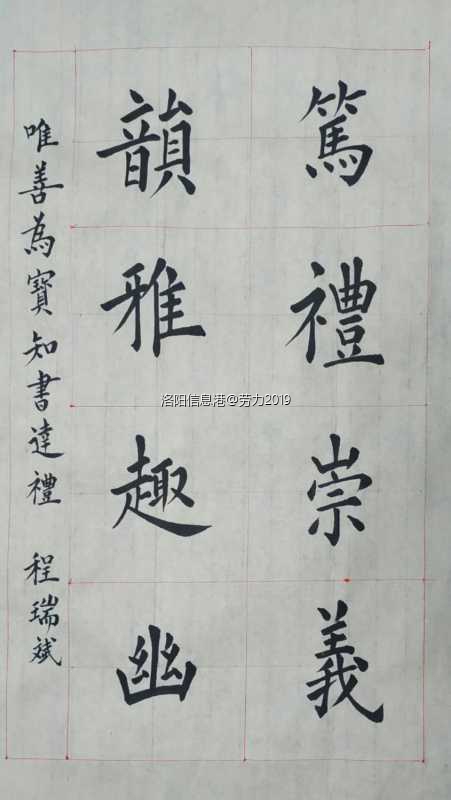 篤禮崇義
韻雅趣幽
唯善為寶知書達禮 程瑞斌
洛阳信息港@劳力2019